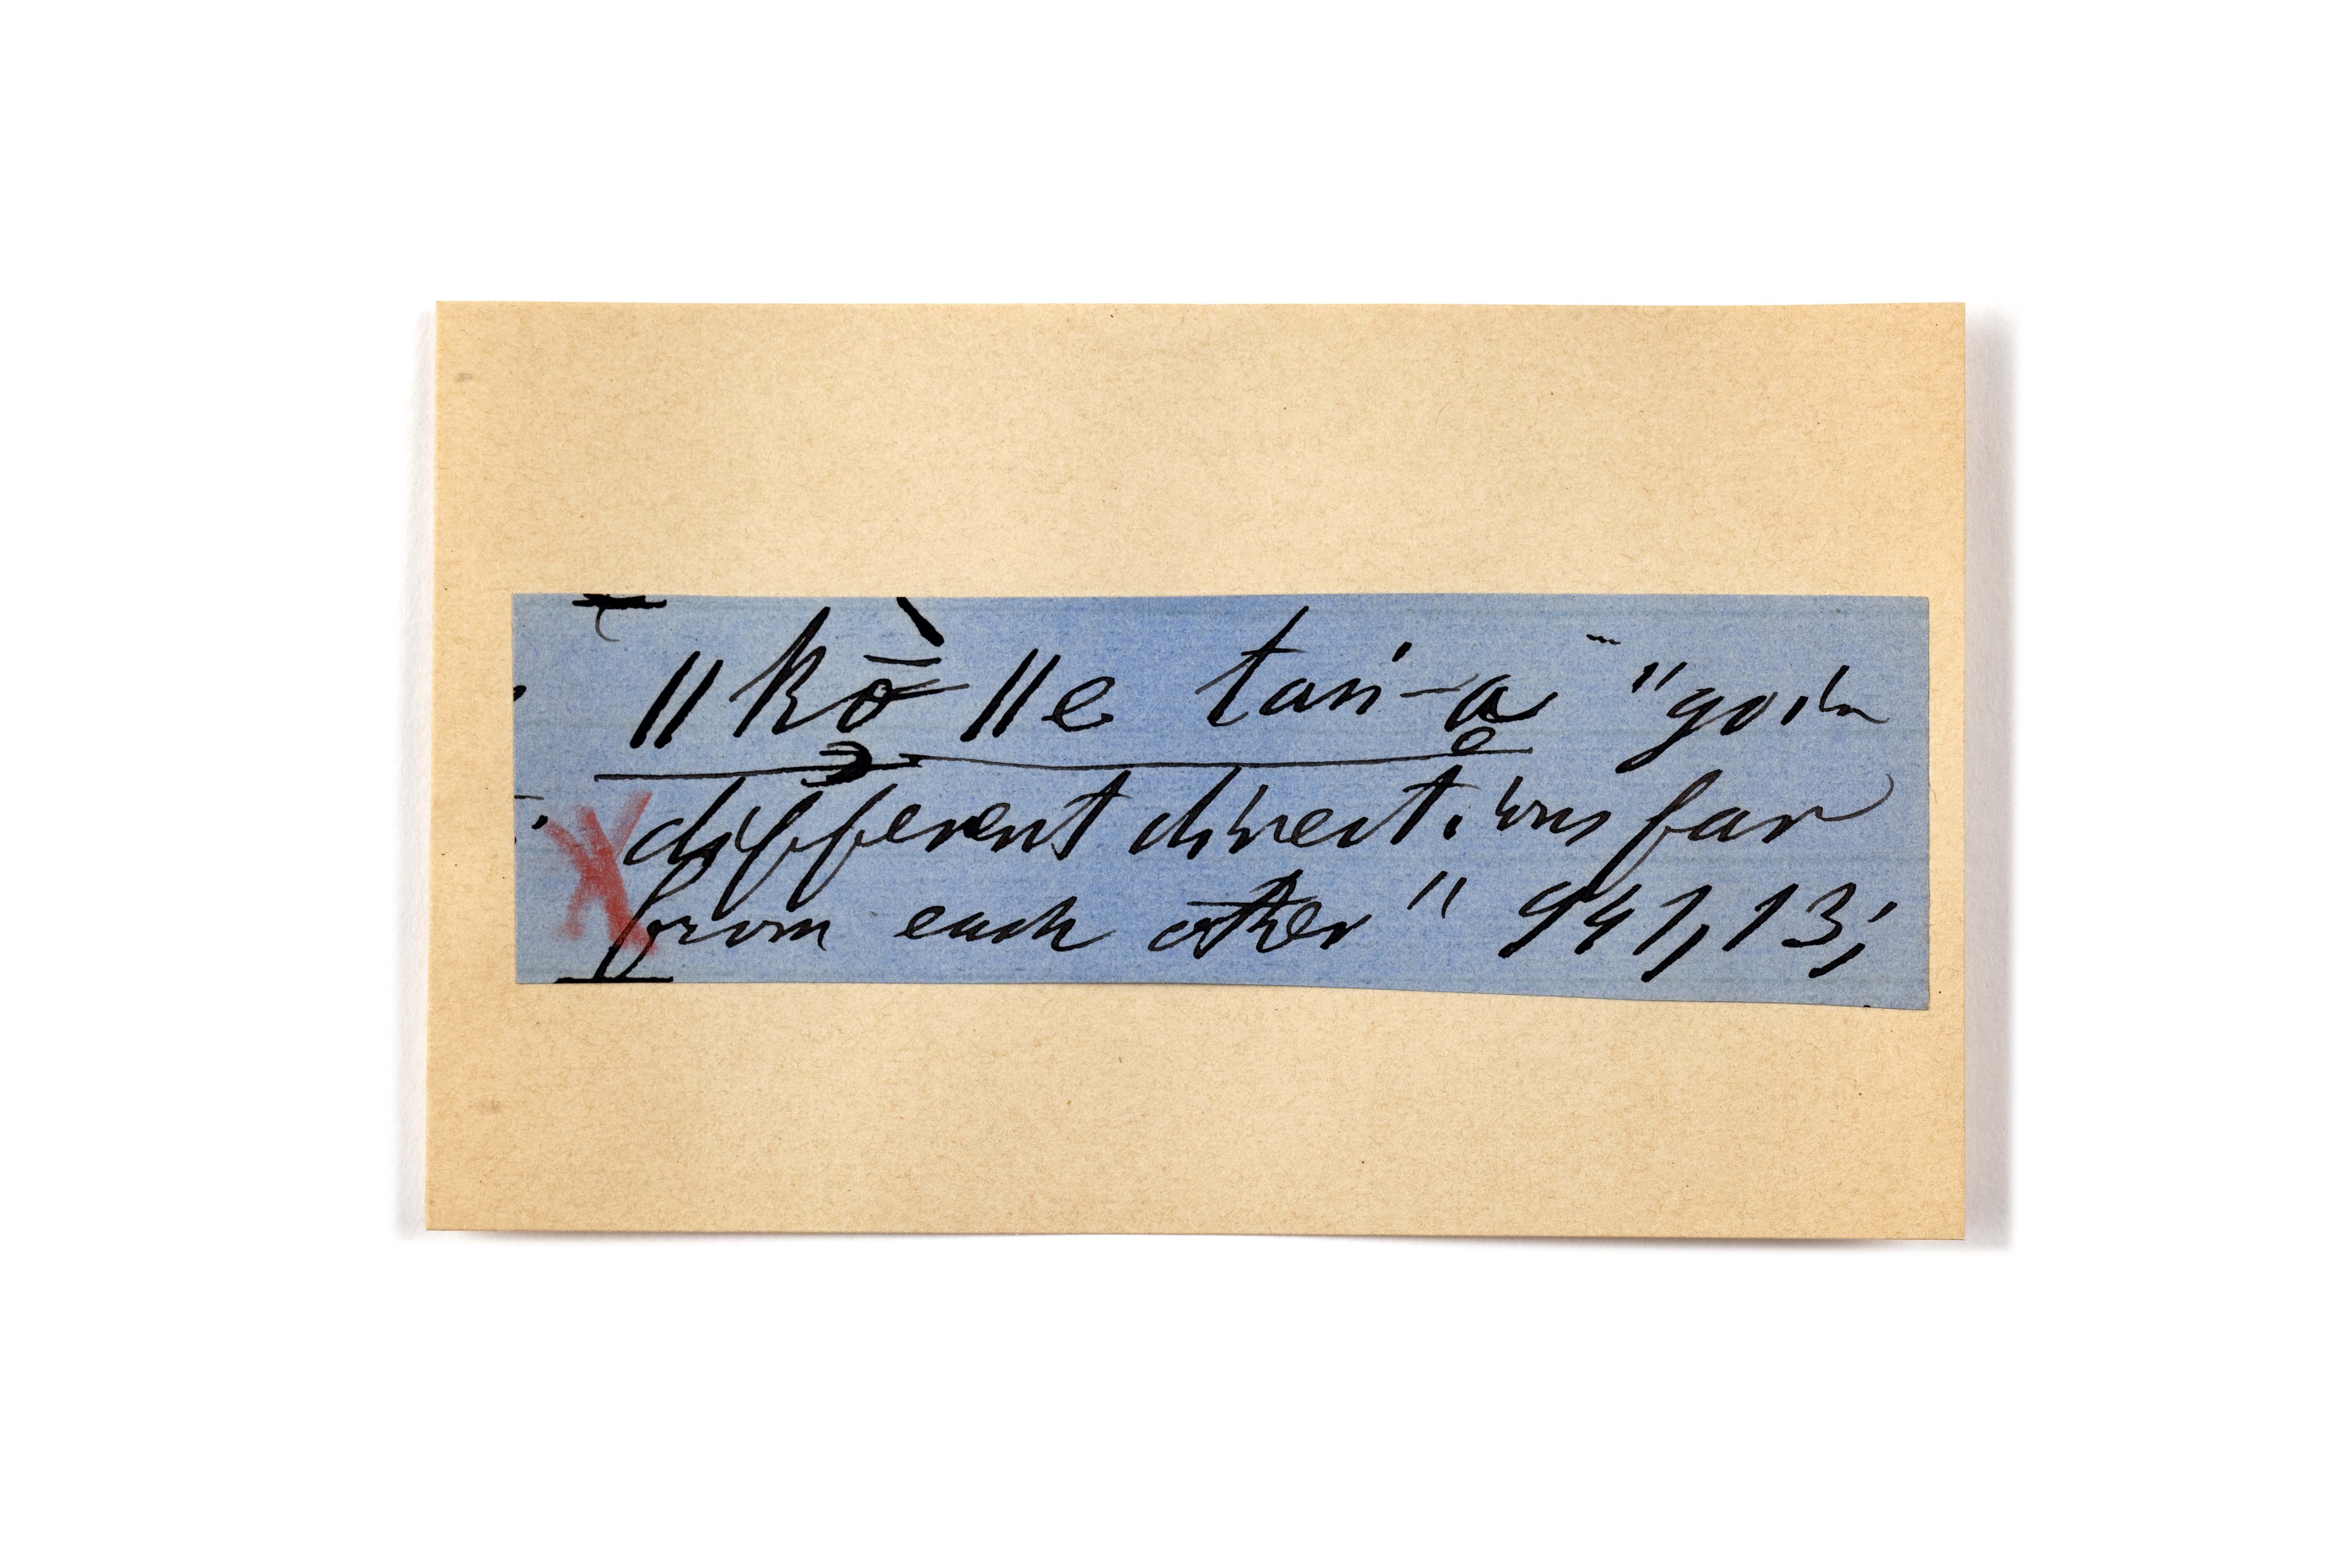 ǁkō ǁe tan-a "go in
different directions far
from each other" 941,13;